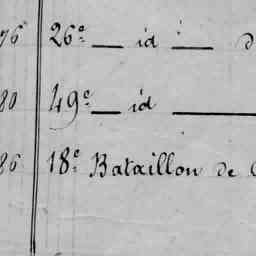 76 26e — id — d
80 49e — id —
86 18e Bataillon de C